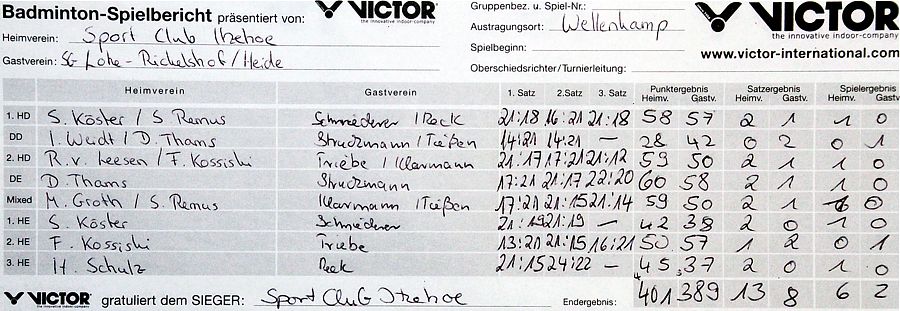 Badminton-Spielbericht präsentiert von: VICTOR the innovative indoor-company Gruppenbez. u. Spiel-Nr.: VICTOR
Heimverein: Sport Club Itzehoe Austragungsort: Wellenkamp the innovative indoor-company
Gastverein: SG Lohe-Rickelshof/Heide Spielbeginn: www.victor-international.com
Oberschiedsrichter/Turnierleitung:
Heimverein Gastverein 1. Satz 2.Satz 3. Satz Punktergebnis Satzergebnis Spielergebnis
Heimv. Gastv. Heimv. Gastv. Heimv. Gastv.
1. HD S. Köster / S. Remus Schmiederer / Reck 21:18 16:21 21:18 58 57 2 1 1 0
DD I. Weidt / D. Thams / Tießen 14:21 14:21 — 28 42 0 2 0 1
2. HD R. v. Leesen / F. Kossiski Triebe / Klarmann 21:17 17:21 21:12 59 50 2 1 1 0
DE D. Thams 17:21 21:17 22:20 60 58 2 1 1 0
Mixed M. Groth / S. Remus Klarmann / Tießen 17:21 21:15 21:14 59 50 2 1 1 0
1. HE S. Köster Schmiederer 21:19 21:19 — 42 38 2 0 1 0
2. HE F. Kossiski Triebe 13:21 21:15 16:21 50 57 1 2 0 1
3. HE H. Schulz Reck 21:15 24:22 — 45 37 2 0 1 0
VICTOR the innovative indoor-company gratuliert dem SIEGER: Sport Club Itzehoe Endergebnis: 401 389 13 8 6 2